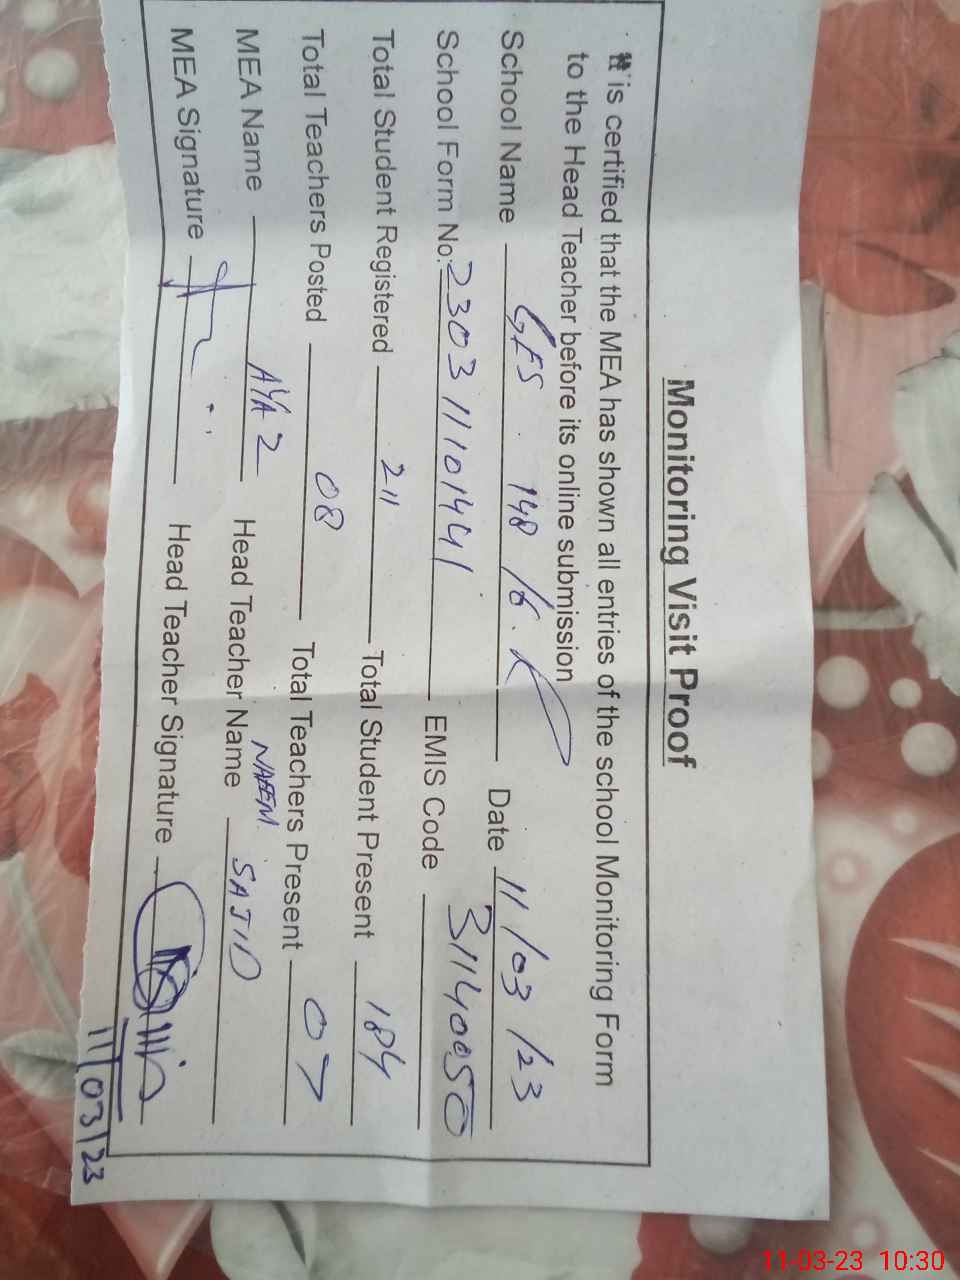 Monitoring Visit Proof
It is certified that the MEA has shown all entries of the school Monitoring Form
to the Head Teacher before its online submission
School Name GES 148 /6.R Date 11/03/23
School Form No: 230311101441 EMIS Code 31140050
Total Student Registered 211 Total Student Present 184
Total Teachers Posted 08 Total Teachers Present 07
MEA Name AYAZ Head Teacher Name NAEEM SAJID
MEA Signature Head Teacher Signature
11/03/23
11-03-23 10:30